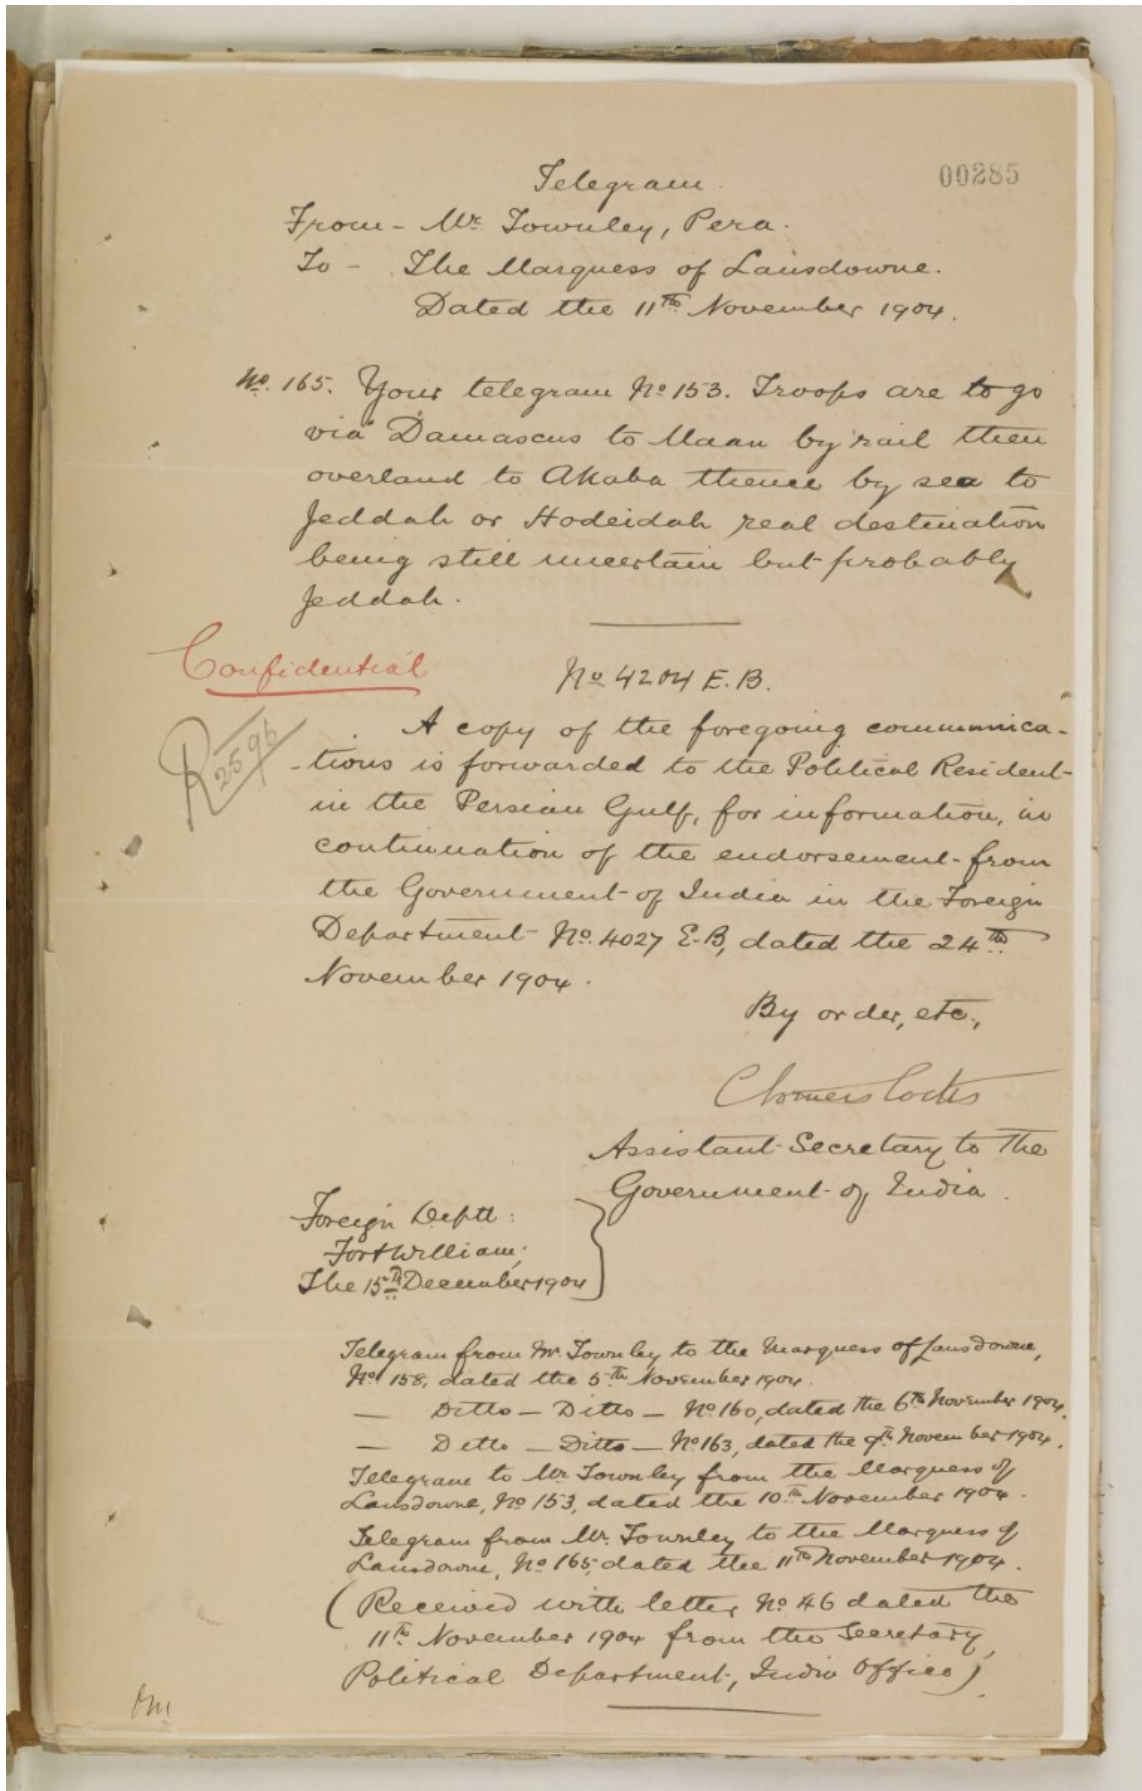 00285
Telegram.
From - Mr. Townley, Pera.
To - The Marquess of Lansdowne.
Dated the 11th November 1904.
No. 165. Your telegram No 153. Troops are to go
via Damascus to Maan by rail then
overland to Akaba thence by sea to
Jeddah or Hodeidah real destination
being still uncertain but probably
Jeddah.
Confidential
No 4204 E.B.
R 2596
A copy of the foregoing communica-
-tions is forwarded to the Political Resident
in the Persian Gulf, for information, in
continuation of the endorsement from
the Government of India in the Foreign
Department No. 4027 E-B, dated the 24th
November 1904.
By order, etc.,
Assistant Secretary to the
Government of India.
Foreign Deptt:
Fort William;
The 15th December 1904
Telegram from Mr. Townley to the Marquess of Lansdowne,
No 158, dated the 5th November 1904.
— Ditto — Ditto — No 160, dated the 6th November 1904.
— Ditto — Ditto — No 163, dated the 9th November 1904.
Telegram to Mr. Townley from the Marquess of
Lansdowne, No 153, dated the 10th November 1904.
Telegram from Mr. Townley to the Marquess of
Lansdowne, No 165, dated the 11th November 1904.
(Received with letter No 46 dated the
11th November 1904 from the Secretary,
Political Department, India Office).